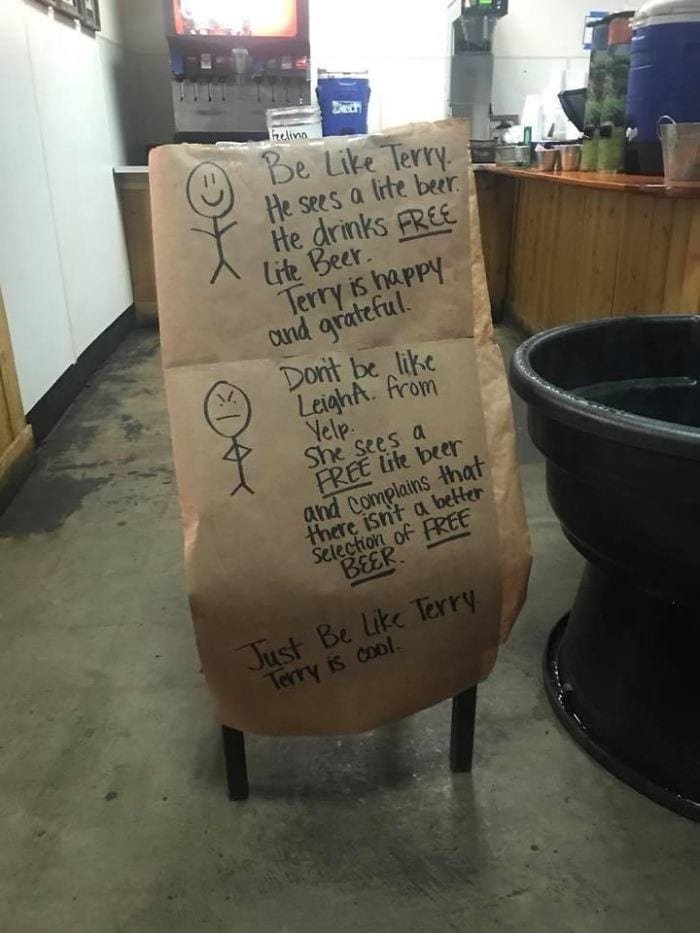 feeling
Be Like Terry.
He sees a lite beer.
He drinks FREE
Lite Beer.
Terry is happy
and grateful.
Don't be like
LeighA. from
Yelp.
She sees a
FREE lite beer
and complains that
there isn't a better
selection of FREE
BEER.
Just Be Like Terry.
Terry is cool.